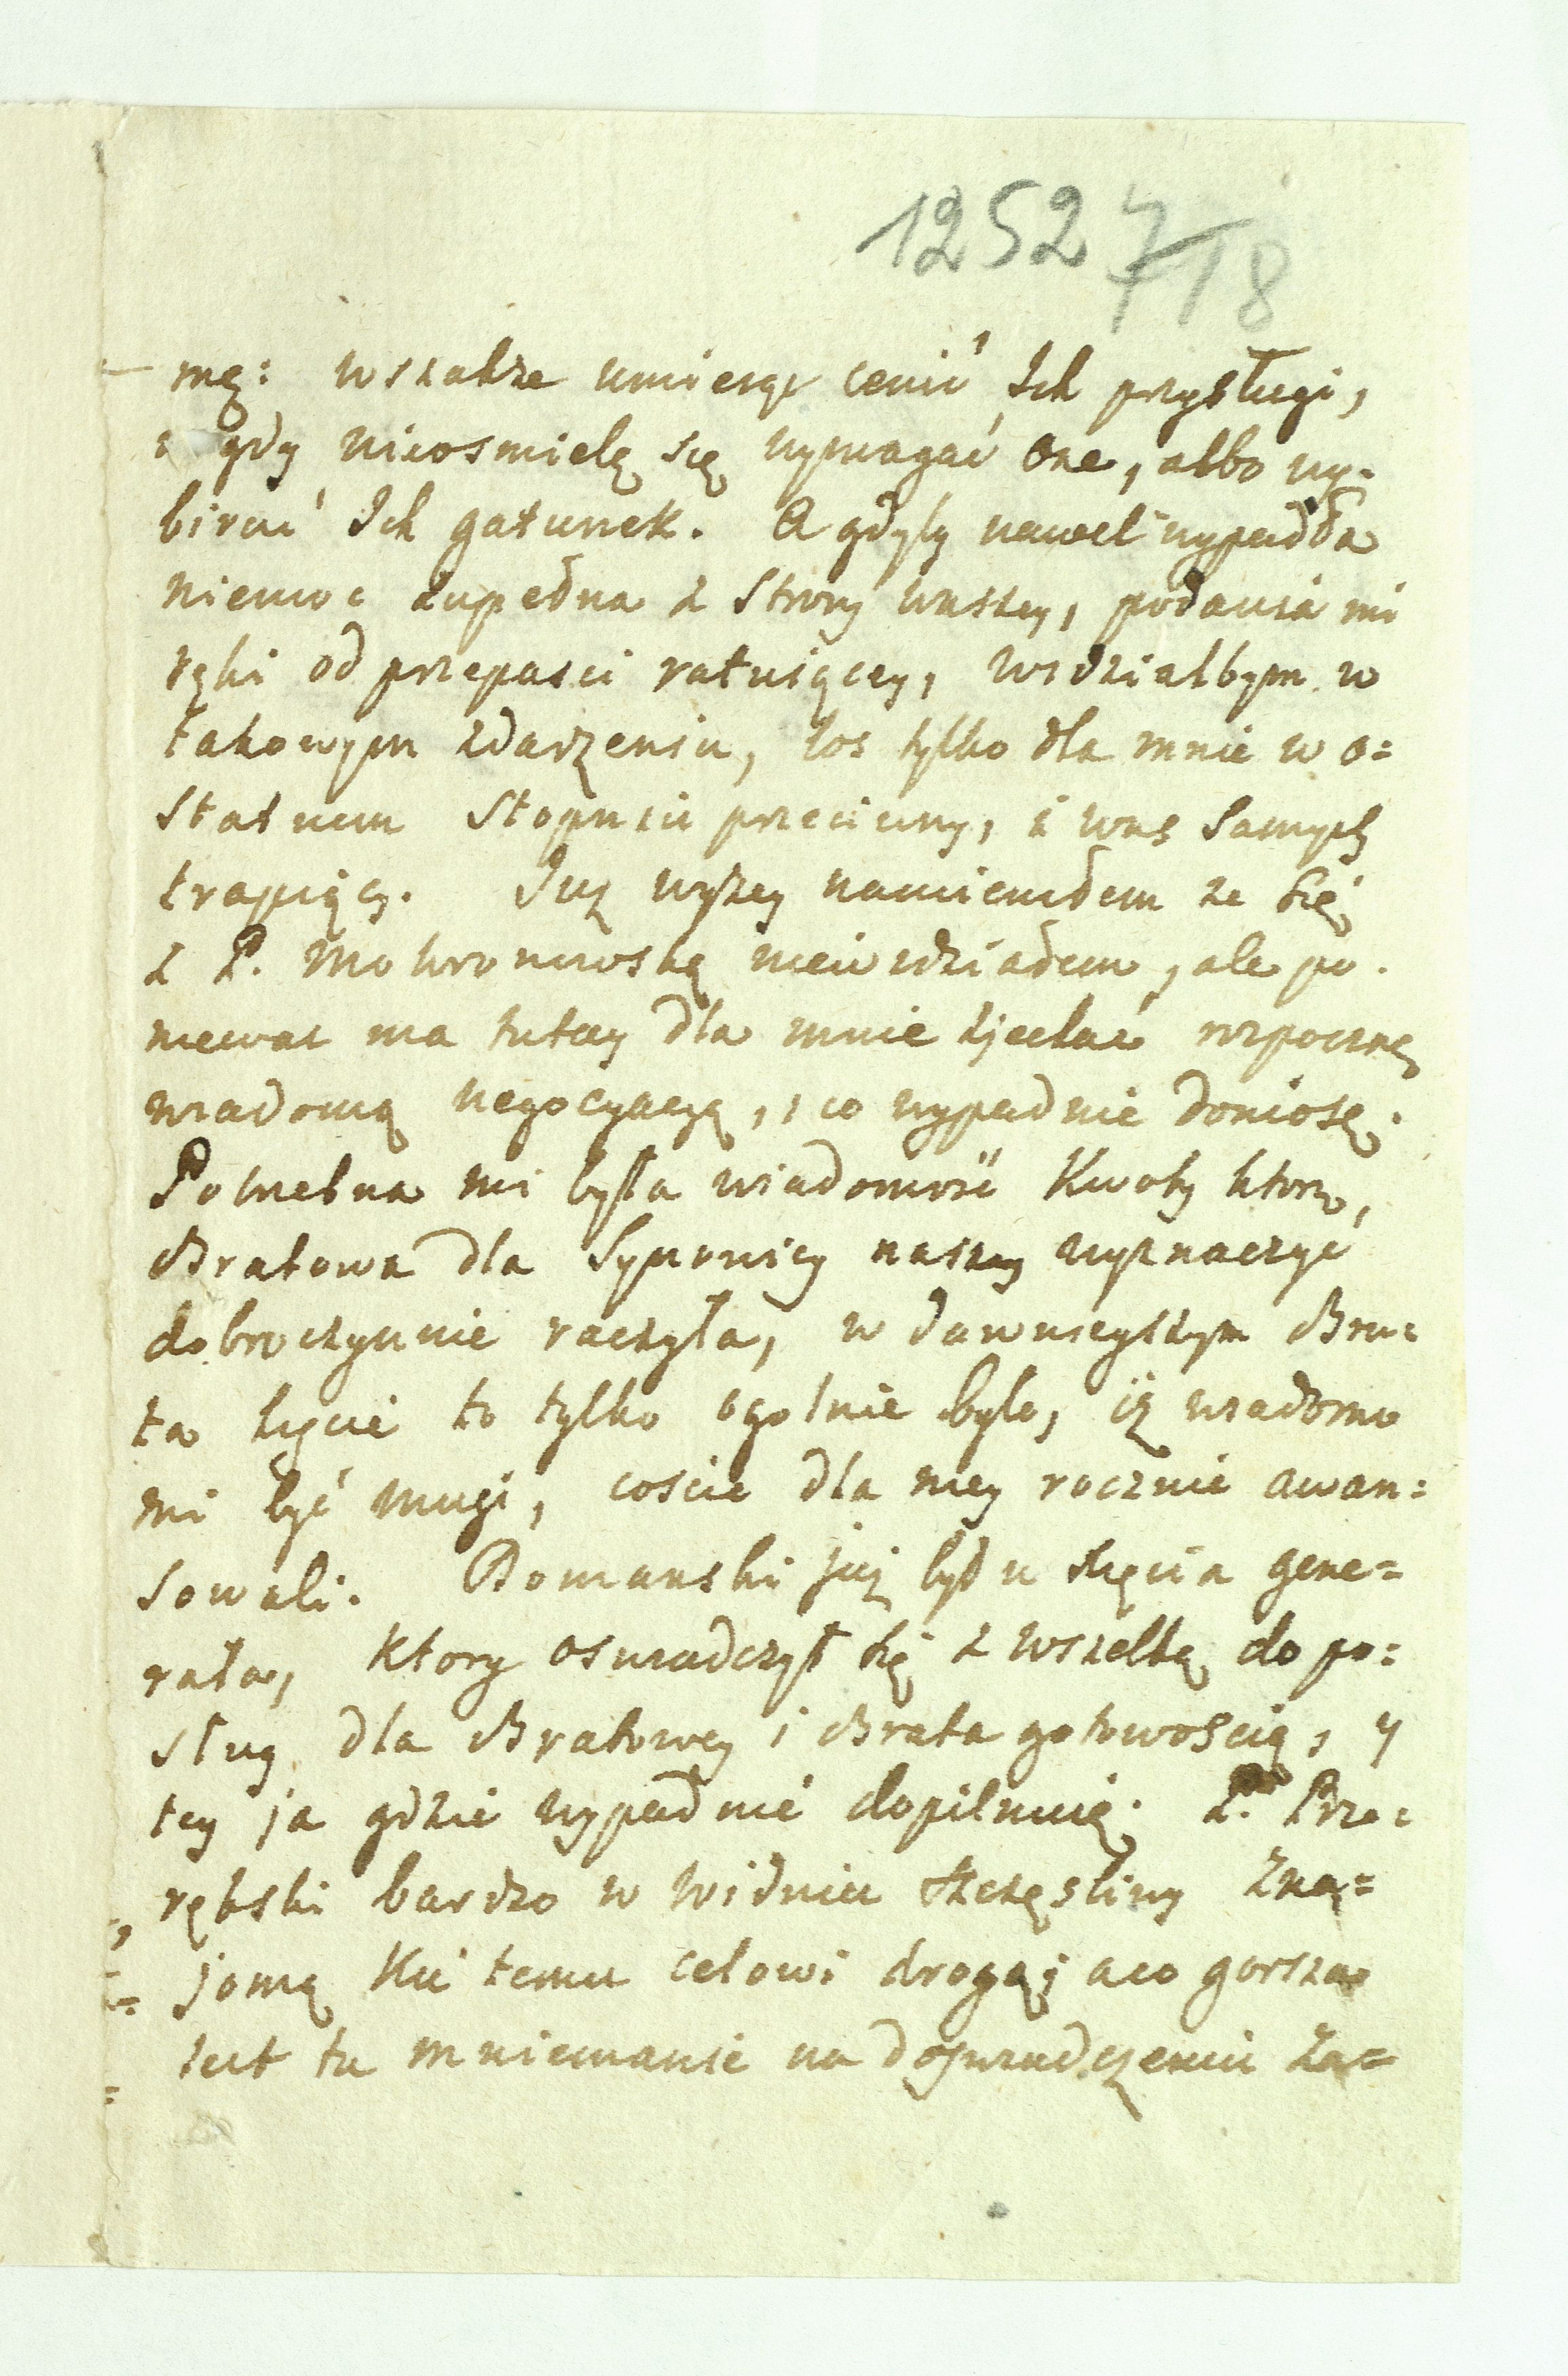 1252 718
mę: wszakże umieię cenić Ich przysługi,
i gdy nieosmielę się wymagać one, albo wy=
birać Ich gatunek. A gdyby nawet wypadła
niemoc zupełna z strony waszey, podania mi
ręki od przepasci ratuiącey, widziałbym w
takowym zdarzeniu, los tylko dla mnie w o=
statnim stopniu przeciwny, i was samych
trapiący. Juz wyżey namieniłem ze się
z P. Mokronowską niewidziałem, ale po.
niewaz ma tutey dla mnie zjechać rozpocznę
wiadomą negocyacyą, i co wypadnie doniosę.
Potrzebna mi była wiadomość Kwoty ktorą,
Bratowa dla Synowicy naszey wyznaczyć
dobroczynnie raczyła, w dawnieyszym Bra=
ta liście to tylko ogolnie było, iż wiadomo
mi być musi, coście dla niey rocznie awan=
sowali. Domanski już był u Xięcia gene=
rała, ktory oswiadczył się z wszelką do po=
sług dla Bratowey i Brata gotowoscią, y
tey ja gdzie wypadnie dopilnuię. P. Prze=
rębski bardzo w Widniu szczęsliwy zna=
jomą Ku temu celowi drogą; a co gorsza
iest tu mniemanie na doswiadczeniu za=